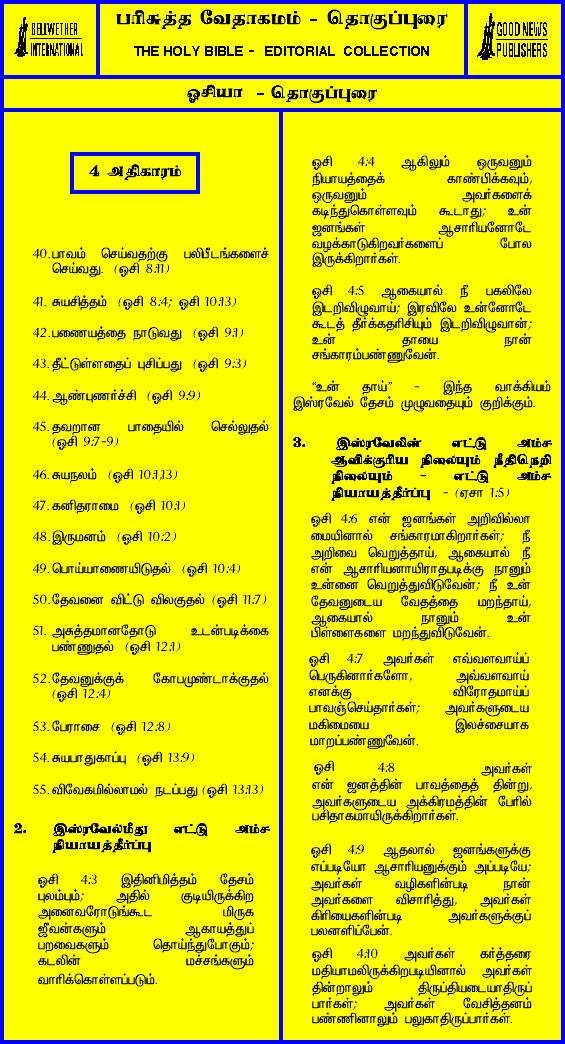 BELLWETHER
INTERNATIONAL
பரிசுத்த வேதாகமம் - தொகுப்புரை
THE HOLY BIBLE - EDITORIAL COLLECTION
GOOD NEWS
PUBLISHERS
ஓசியா - தொகுப்புரை
4 அதிகாரம்
40. பாவம் செய்வதற்கு பலிபீடங்களைச்
செய்வது. (ஓசி 8:11)
41. சுயசித்தம் (ஓசி 8:4; ஓசி 10:13)
42. பணையத்தை நாடுவது (ஓசி 9:1)
43. தீட்டுள்ளதைப் புசிப்பது (ஓசி 9:3)
44. ஆண்புணர்ச்சி (ஓசி 9:9)
45. தவறான பாதையில் செல்லுதல்
(ஓசி 9:7-9)
46. சுயநலம் (ஓசி 10:1,13)
47. கனிதராமை (ஓசி 10:1)
48. இருமனம் (ஓசி 10:2)
49. பொய்யாணையிடுதல் (ஓசி 10:4)
50. தேவனை விட்டு விலகுதல் (ஓசி 11:7)
51. அசுத்தமானதோடு உடன்படிக்கை
பண்ணுதல் (ஓசி 12:1)
52. தேவனுக்குக் கோபமுண்டாக்குதல்
(ஓசி 12:4)
53. பேராசை (ஓசி 12:8)
54. சுயபாதுகாப்பு (ஓசி 13:9)
55. விவேகமில்லாமல் நடப்பது (ஓசி 13:13)
2. இஸ்ரவேல்மீது எட்டு அம்ச
நியாயத்தீர்ப்பு
ஓசி 4:3 இதினிமித்தம் தேசம்
புலம்பும்; அதில் குடியிருக்கிற
அனைவரோடுங்கூட மிருக
ஜீவன்களும் ஆகாயத்துப்
பறவைகளும் தொய்ந்துபோகும்;
கடலின் மச்சங்களும்
வாரிக்கொள்ளப்படும்.
ஓசி 4:4 ஆகிலும் ஒருவனும்
நியாயத்தைக் காண்பிக்கவும்,
ஒருவனும் அவர்களைக்
கடிந்துகொள்ளவும் கூடாது; உன்
ஜனங்கள் ஆசாரியனோடே
வழக்காடுகிறவர்களைப் போல
இருக்கிறார்கள்.
ஓசி 4:5 ஆகையால் நீ பகலிலே
இடறிவிழுவாய்; இரவிலே உன்னோடே
கூடத் தீர்க்கதரிசியும் இடறிவிழுவான்;
உன் தாயை நான்
சங்காரம்பண்ணுவேன்.
“உன் தாய்” - இந்த வாக்கியம்
இஸ்ரவேல் தேசம் முழுவதையும் குறிக்கும்.
3. இஸ்ரவேலின் எட்டு அம்ச
ஆவிக்குரிய நிலையும் நீதிநெறி
நிலையும் - எட்டு அம்ச
நியாயத்தீர்ப்பு - (ஏசா 1:5)
ஓசி 4:6 என் ஜனங்கள் அறிவில்லா
மையினால் சங்காரமாகிறார்கள்; நீ
அறிவை வெறுத்தாய், ஆகையால் நீ
என் ஆசாரியனாயிராதபடிக்கு நானும்
உன்னை வெறுத்துவிடுவேன்; நீ உன்
தேவனுடைய வேதத்தை மறந்தாய்,
ஆகையால் நானும் உன்
பிள்ளைகளை மறந்துவிடுவேன்.
ஓசி 4:7 அவர்கள் எவ்வளவாய்ப்
பெருகினார்களோ, அவ்வளவாய்
எனக்கு விரோதமாய்ப்
பாவஞ்செய்தார்கள்; அவர்களுடைய
மகிமையை இலச்சையாக
மாறப்பண்ணுவேன்.
ஓசி 4:8 அவர்கள்
என் ஜனத்தின் பாவத்தைத் தின்று,
அவர்களுடைய அக்கிரமத்தின் பேரில்
பசிதாகமாயிருக்கிறார்கள்.
ஓசி 4:9 ஆதலால் ஜனங்களுக்கு
எப்படியோ ஆசாரியனுக்கும் அப்படியே;
அவர்கள் வழிகளின்படி நான்
அவர்களை விசாரித்து, அவர்கள்
கிரியைகளின்படி அவர்களுக்குப்
பலனளிப்பேன்.
ஓசி 4:10 அவர்கள் கர்த்தரை
மதியாமலிருக்கிறபடியினால் அவர்கள்
தின்றாலும் திருப்தியடையாதிருப்
பார்கள்; அவர்கள் வேசித்தனம்
பண்ணினாலும் பலுகாதிருப்பார்கள்.